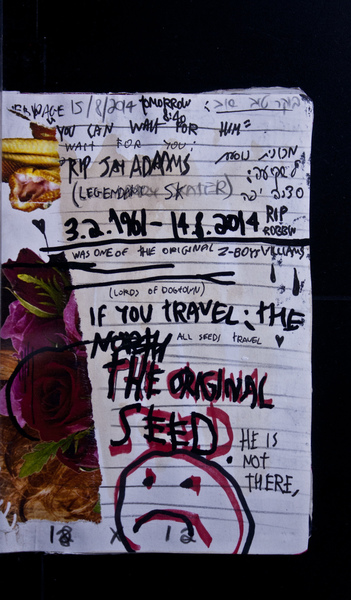 15/8/2014 TOMORROW
8:40
YOU CAN WAIT FOR HIM"
WAIT FOR YOU,
RIP JAY ADAAMS
(LEGENDARY SKATER)
3.2.1961 - 14.8.2014 RIP
ROBBIN
WAS ONE OF THE ORIGINAL Z-BOYS VILLIANS
(LORDS OF DOGTOWN)
IF YOU TRAVEL: THE
NORTH ALL SEEDS TRAVEL
THE ORIGINAL
SEED.
HE IS
NOT
THERE,
18 x 12